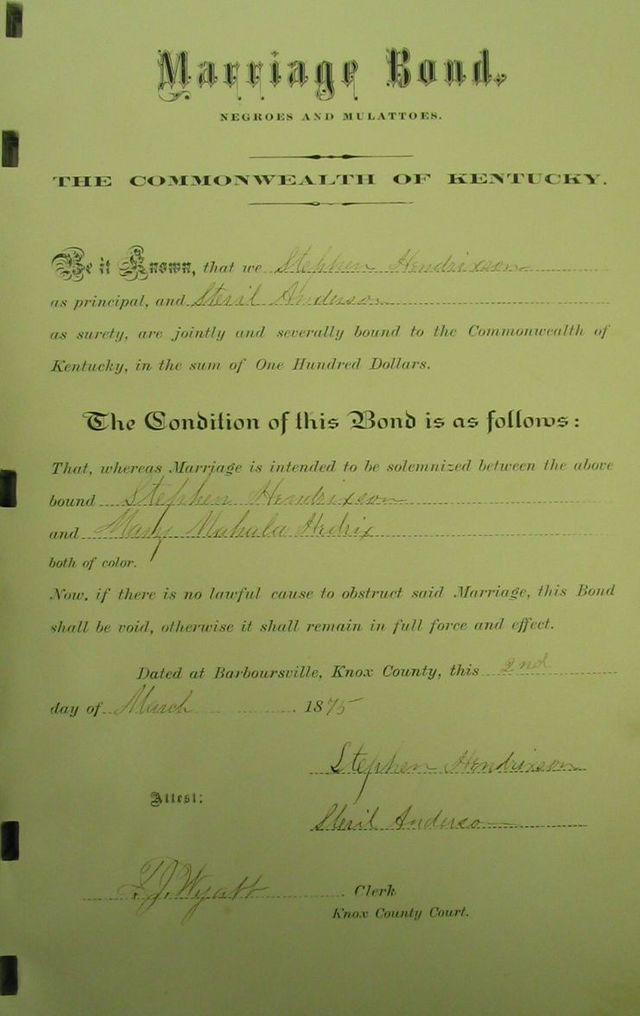 Marriage Bond.
NEGROES AND MULATTOES.
THE COMMONWEALTH OF KENTUCKY.
Be it Known, that we Stephen Hendrixson
as principal, and Steril Anderson
as surety, are jointly and severally bound to the Commonwealth of
Kentucky, in the sum of One Hundred Dollars.
The Condition of this Bond is as follows:
That, whereas Marriage is intended to be solemnized between the above
bound Stephen Hendrixson
and Mary Mahala Hedrix
both of color.
Now, if there is no lawful cause to obstruct said Marriage, this Bond
shall be void, otherwise it shall remain in full force and effect.
Dated at Barboursville, Knox County, this 2nd
day of March 1875
Stephen Hendrixson
Attest:
Steril Anderson
T.J. Wyatt Clerk
Knox County Court.